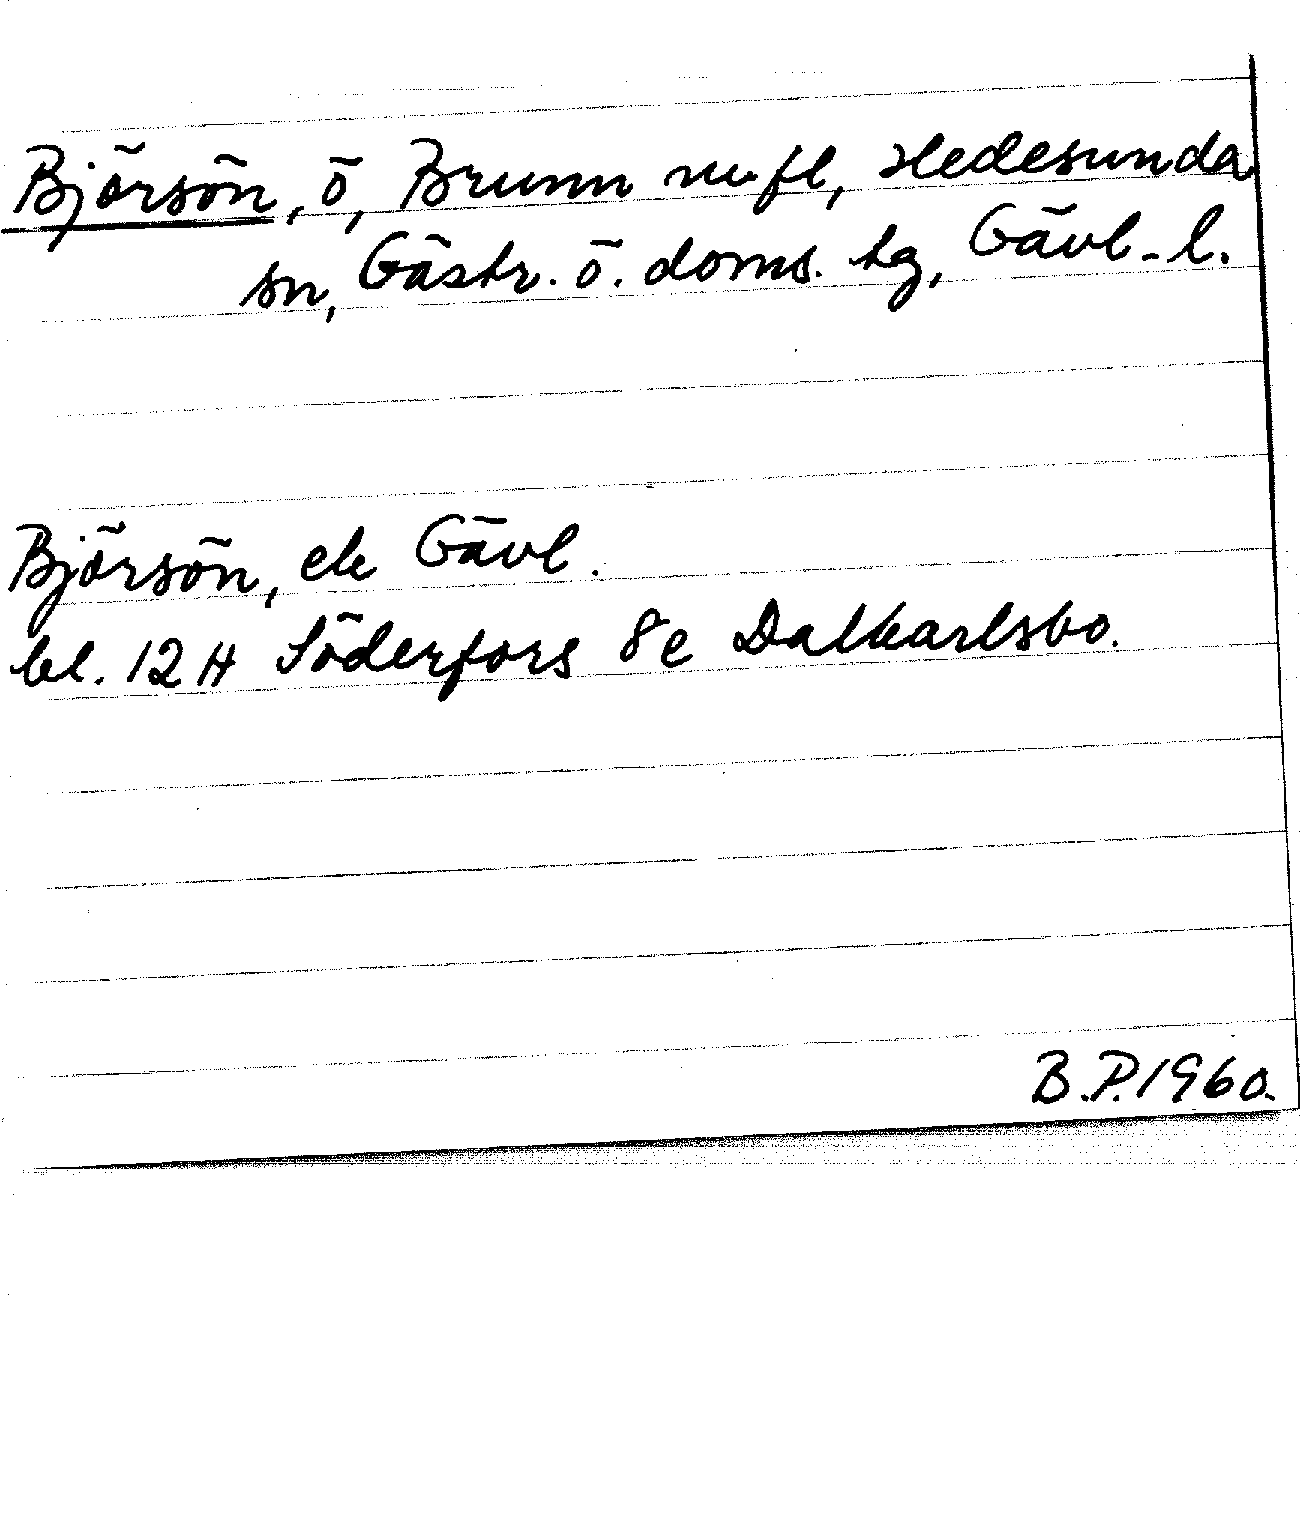 Björsön, ö, Brunn nr fl, Hedesunda
sn, Gästr. ö. doms. tg, Gävl. l.
Björsön, ek Gävl.
bl. 12 H Söderfors 8e Dalkarlsbo.
B.P. 1960.